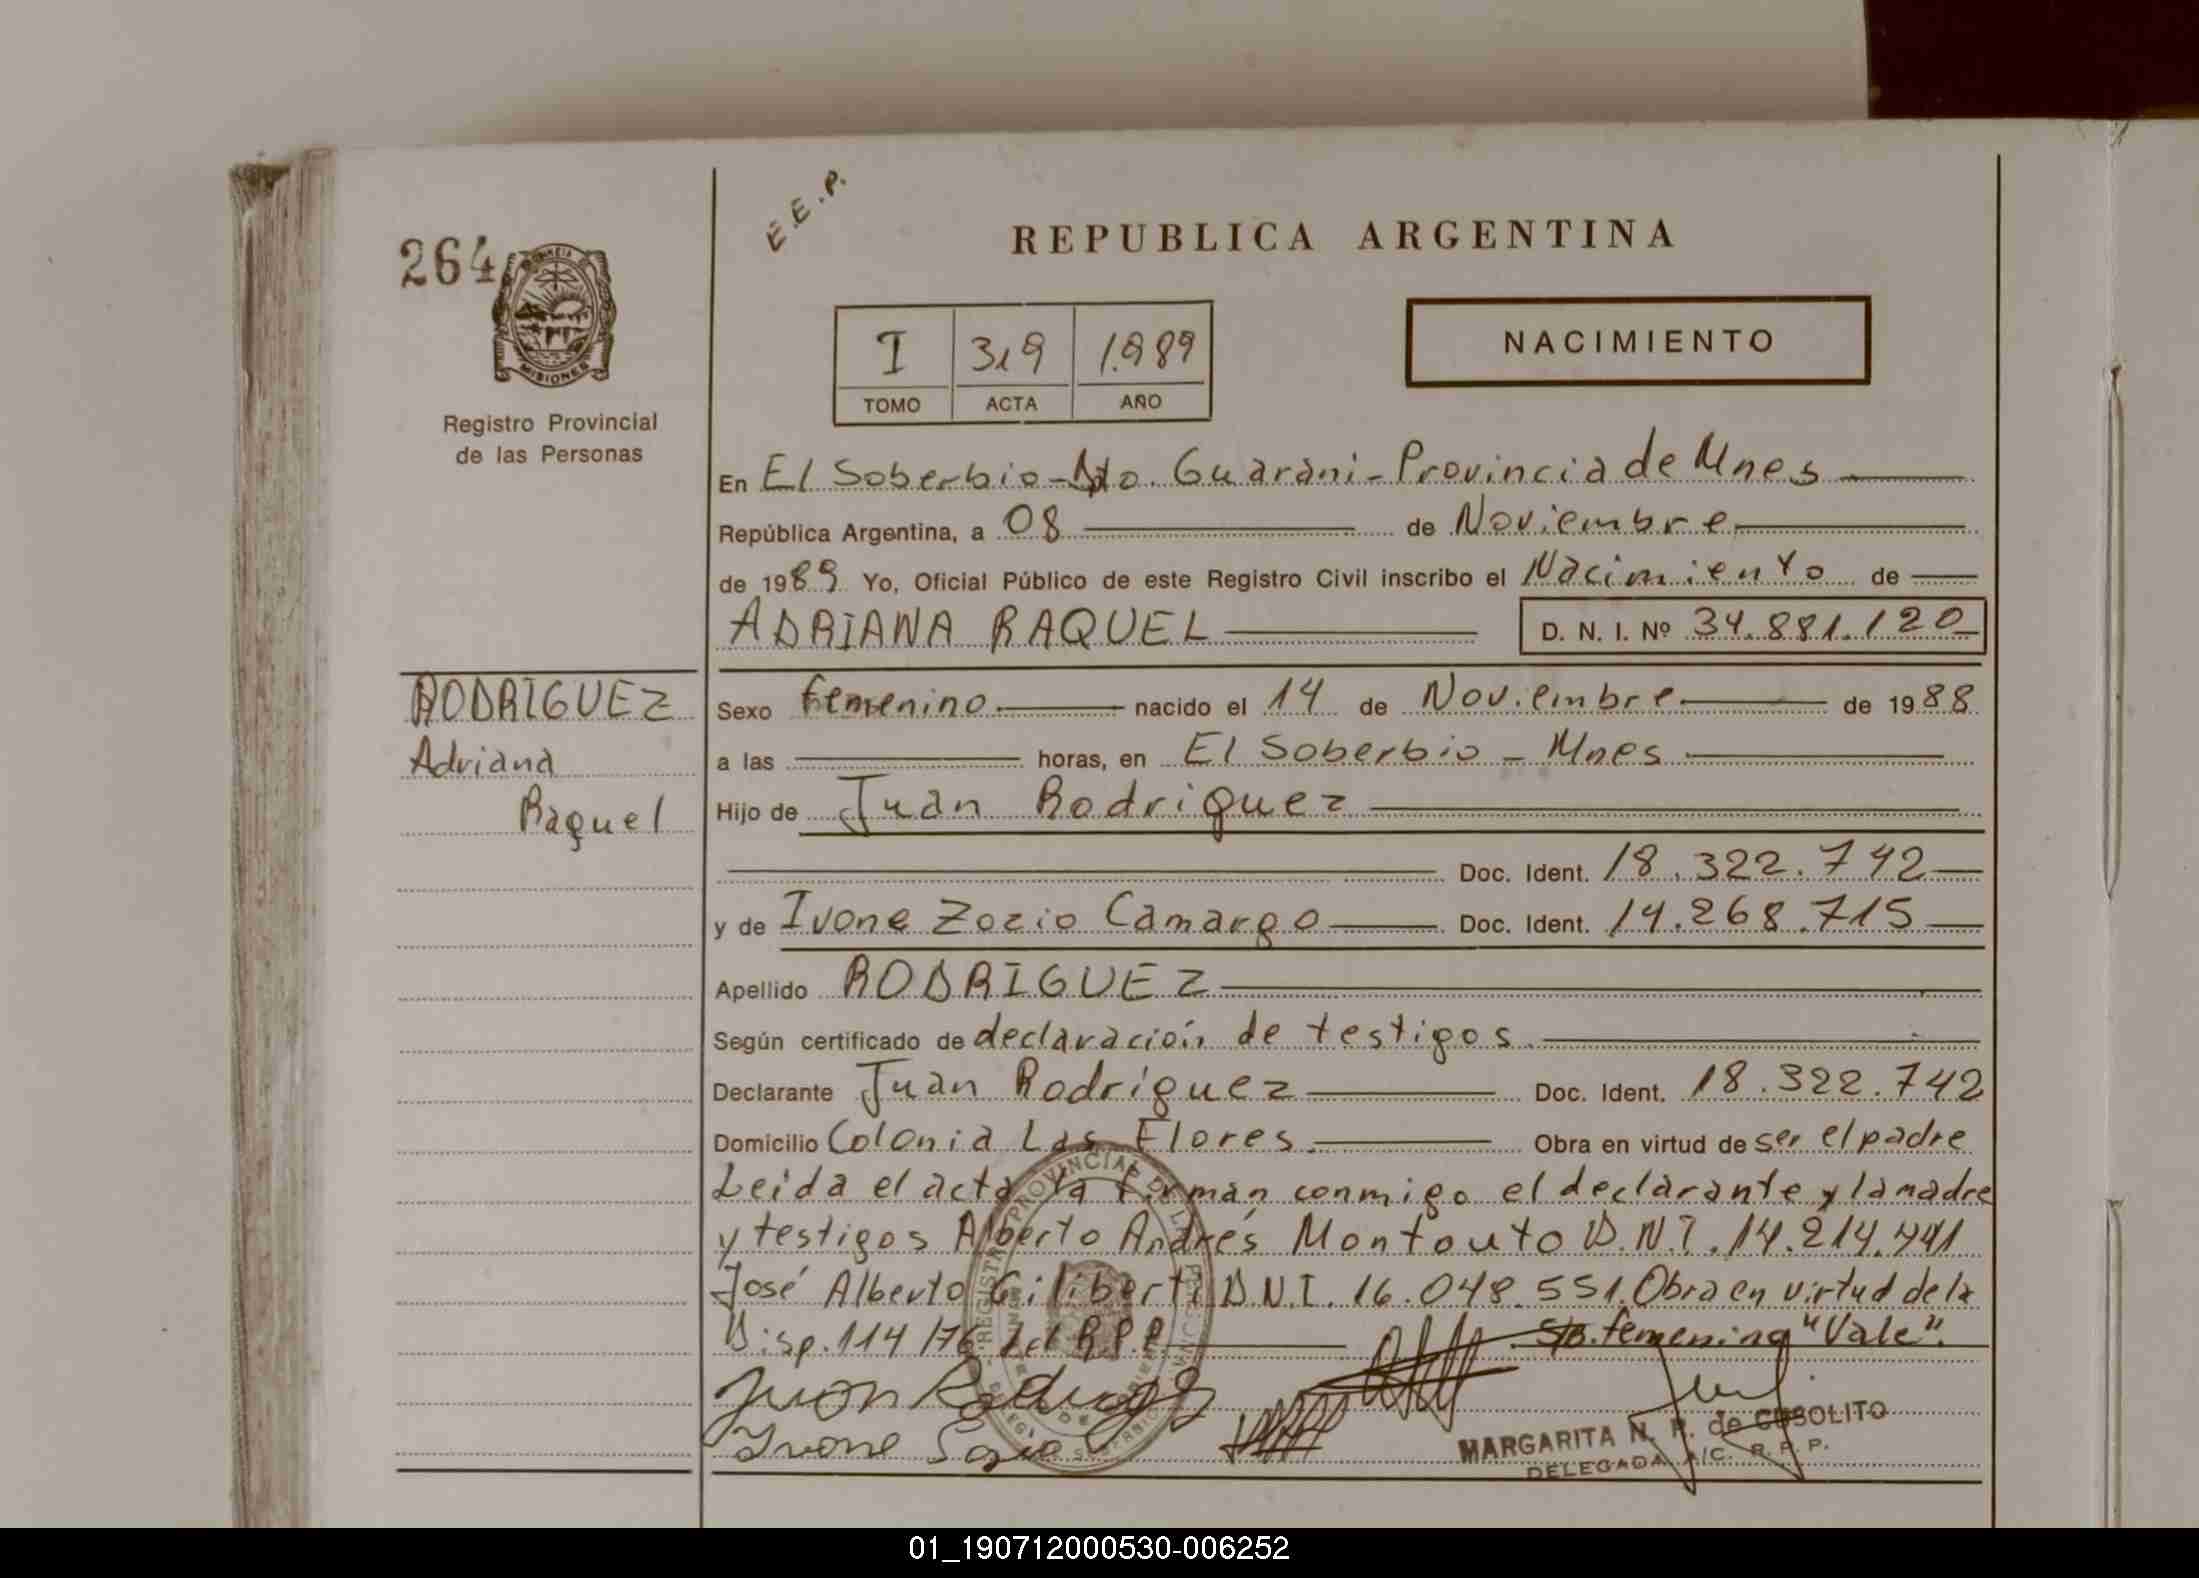 E.E.P.
264
MISIONES
Registro Provincial
de las Personas
REPUBLICA ARGENTINA
NACIMIENTO
I 319 1.989
TOMO ACTA AÑO
En El Soberbio-Dto. Guarani-Provincia de Mnes
República Argentina, a 08 de Noviembre
de 1989 Yo, Oficial Público de este Registro Civil inscribo el Nacimiento de
ADRIANA RAQUEL D. N. I. Nº 34.881.120
RODRIGUEZ
Adriana
Raquel
Sexo femenino nacido el 14 de Noviembre de 1988
a las horas, en El Soberbio - Mnes
Hijo de Juan Rodriguez
Doc. Ident. 18.322.742
y de Ivone Zozio Camargo Doc. Ident. 14.268.715
Apellido RODRIGUEZ
Según certificado de declaración de testigos.
Declarante Juan Rodriguez Doc. Ident. 18.322.742
Domicilio Colonia Las Flores. Obra en virtud de ser el padre
Leida el acta la firman conmigo el declarante y la madre
y testigos Alberto Andrés Montouto D.N.I. 14.214.441
José Alberto Giliberti D.N.I. 16.048.551. Obra en virtud de la
Disp. 114/76 del R.P.P. S/B. femenino "Vale".
Juan Rodriguez
Ivone
MARGARITA N. P. de CUSOLITO
DELEGADA A/C. R. P. P.
01_190712000530-006252